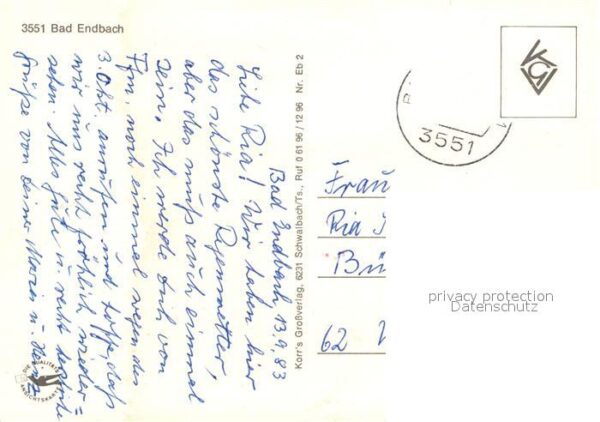 3551 Bad Endbach
Bad Endbach 13.9.83
Liebe Ria! Wir haben hier
das schönste Regenwetter,
aber das muß auch einmal
sein. Ich werde dich von
Ffm. noch einmal wegen des
3. Okt. anrufen und hoffe, daß
wir uns recht fröhlich wieder=
sehen. Alles Gute u. recht herzliche
Grüße von deiner Maria u. Heinz
Korr's Großverlag, 6231 Schwalbach/Ts., Ruf 0 61 96 / 12 96 Nr. Eb 2
KGV
3551
Frau
Ria
Bü
62
privacy protection
Datenschutz
DIE QUALITÄTS
ANSICHTSKARTE